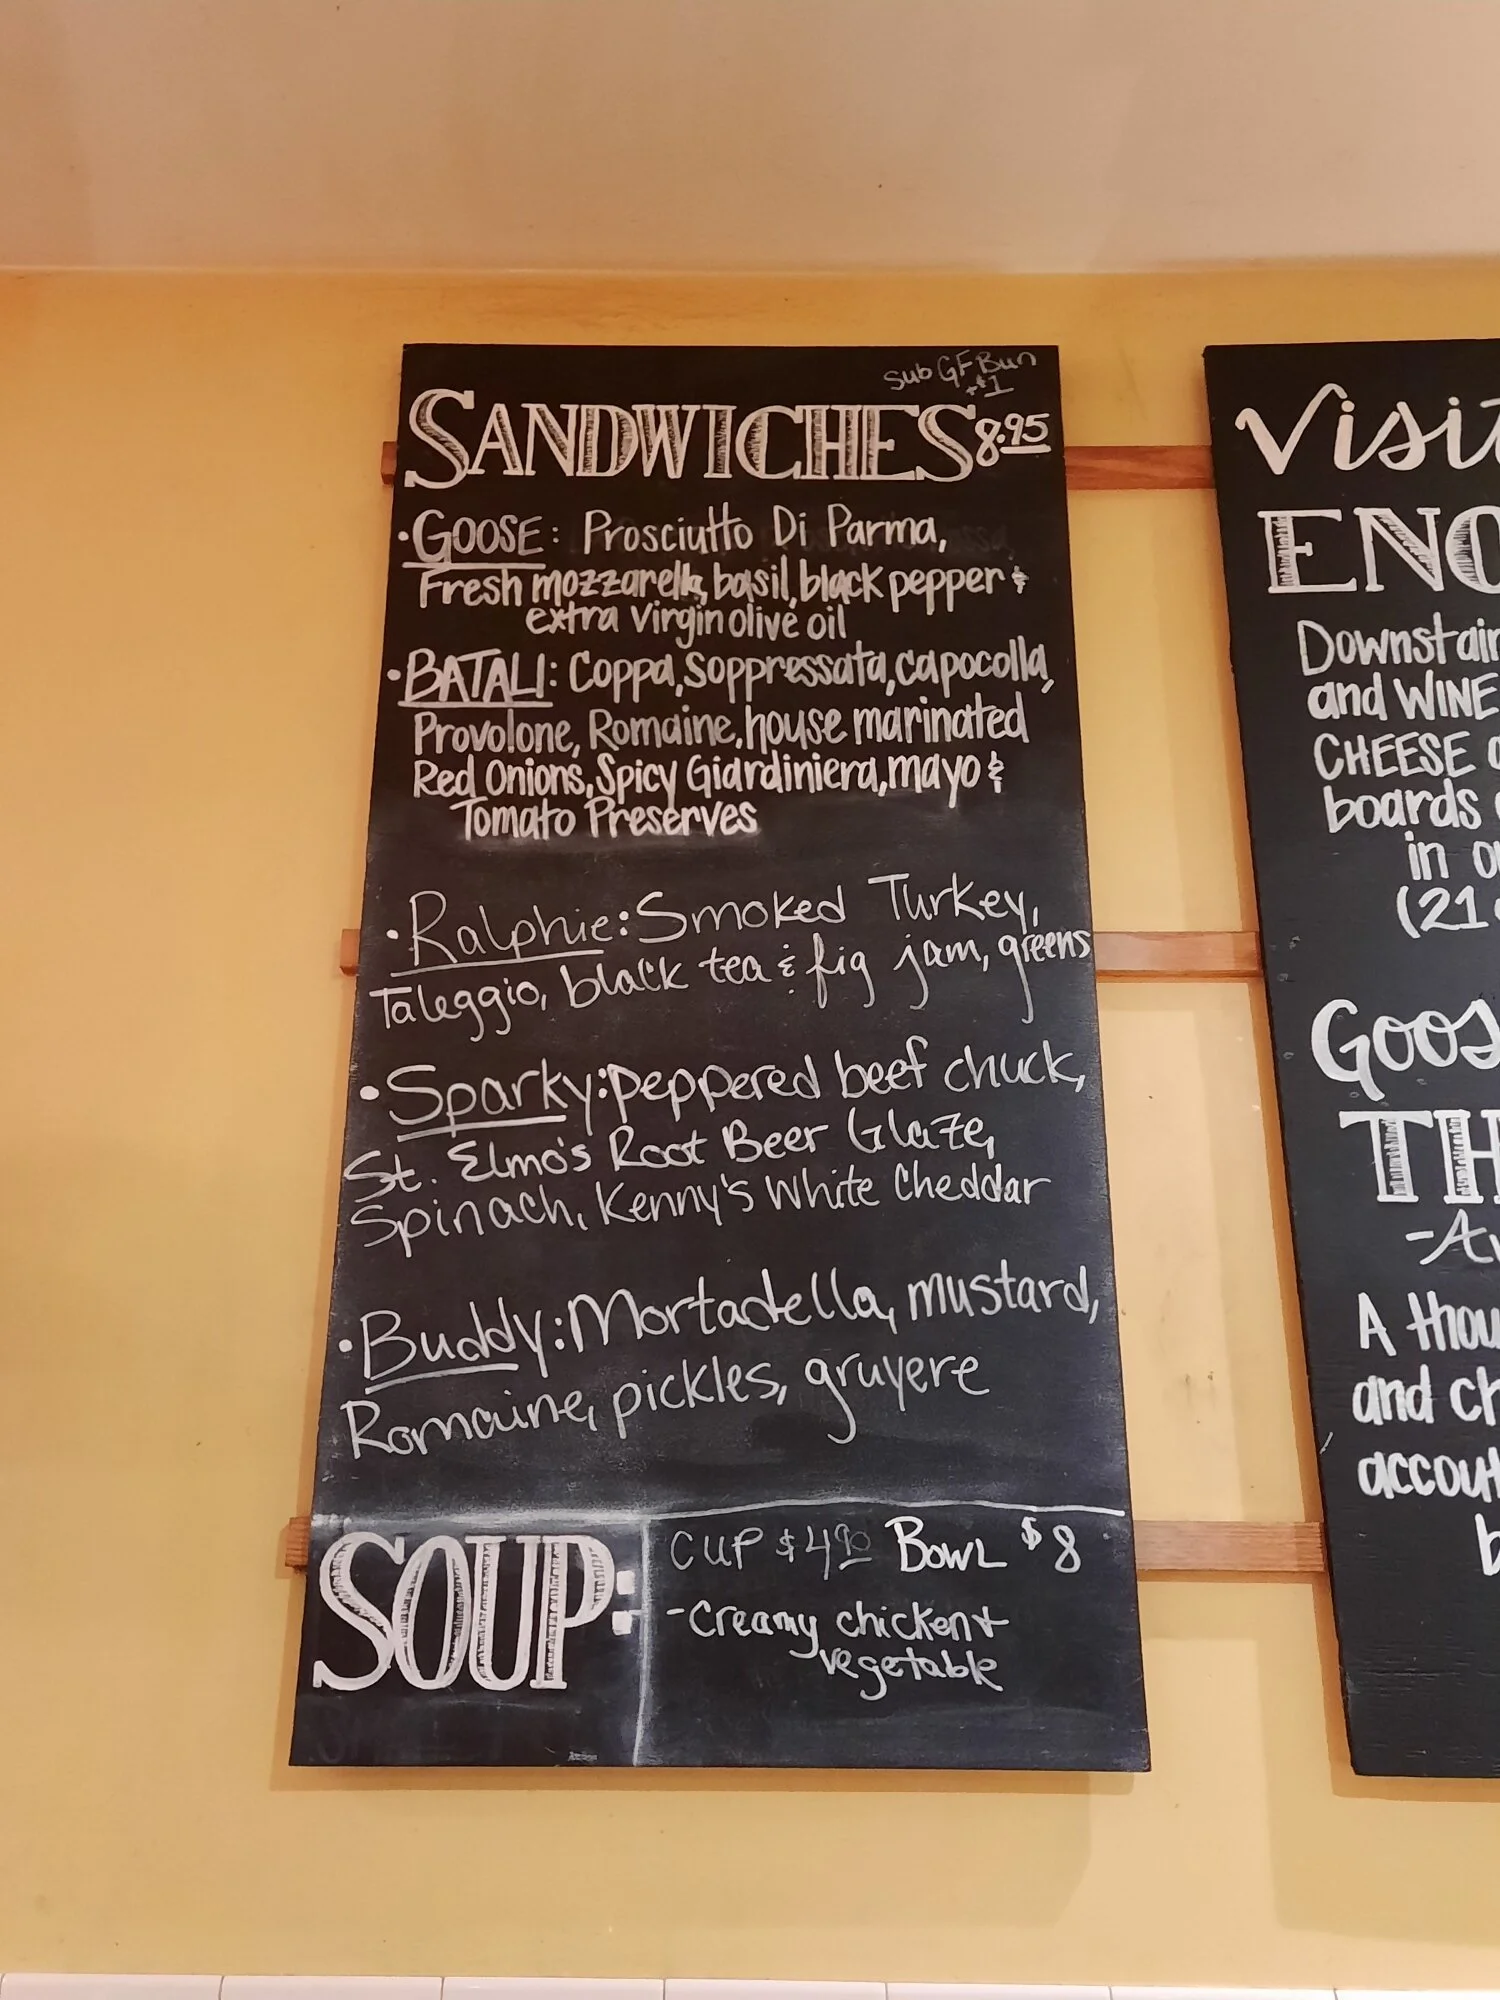 Sub GF Bun
+$1
SANDWICHES 8.95
• GOOSE: Prosciutto Di Parma,
Fresh mozzarella, basil, black pepper &
extra virgin olive oil
• BATALI: Coppa, Soppressata, capocolla,
Provolone, Romaine, house marinated
Red Onions, Spicy Giardiniera, mayo &
Tomato Preserves
• Ralphie: Smoked Turkey,
Taleggio, black tea & fig jam, greens
• Sparky: peppered beef chuck,
St. Elmo's Root Beer Glaze,
Spinach, Kenny's White Cheddar
• Buddy: Mortadella, mustard,
Romaine, pickles, gruyere
SOUP:
CUP $4.90 BOWL $8
- Creamy chicken +
vegetable
Visit
ENO
Downstair
and WINE
CHEESE
boards
in
(21
Goos
TH
A thou
and ch
accou
b